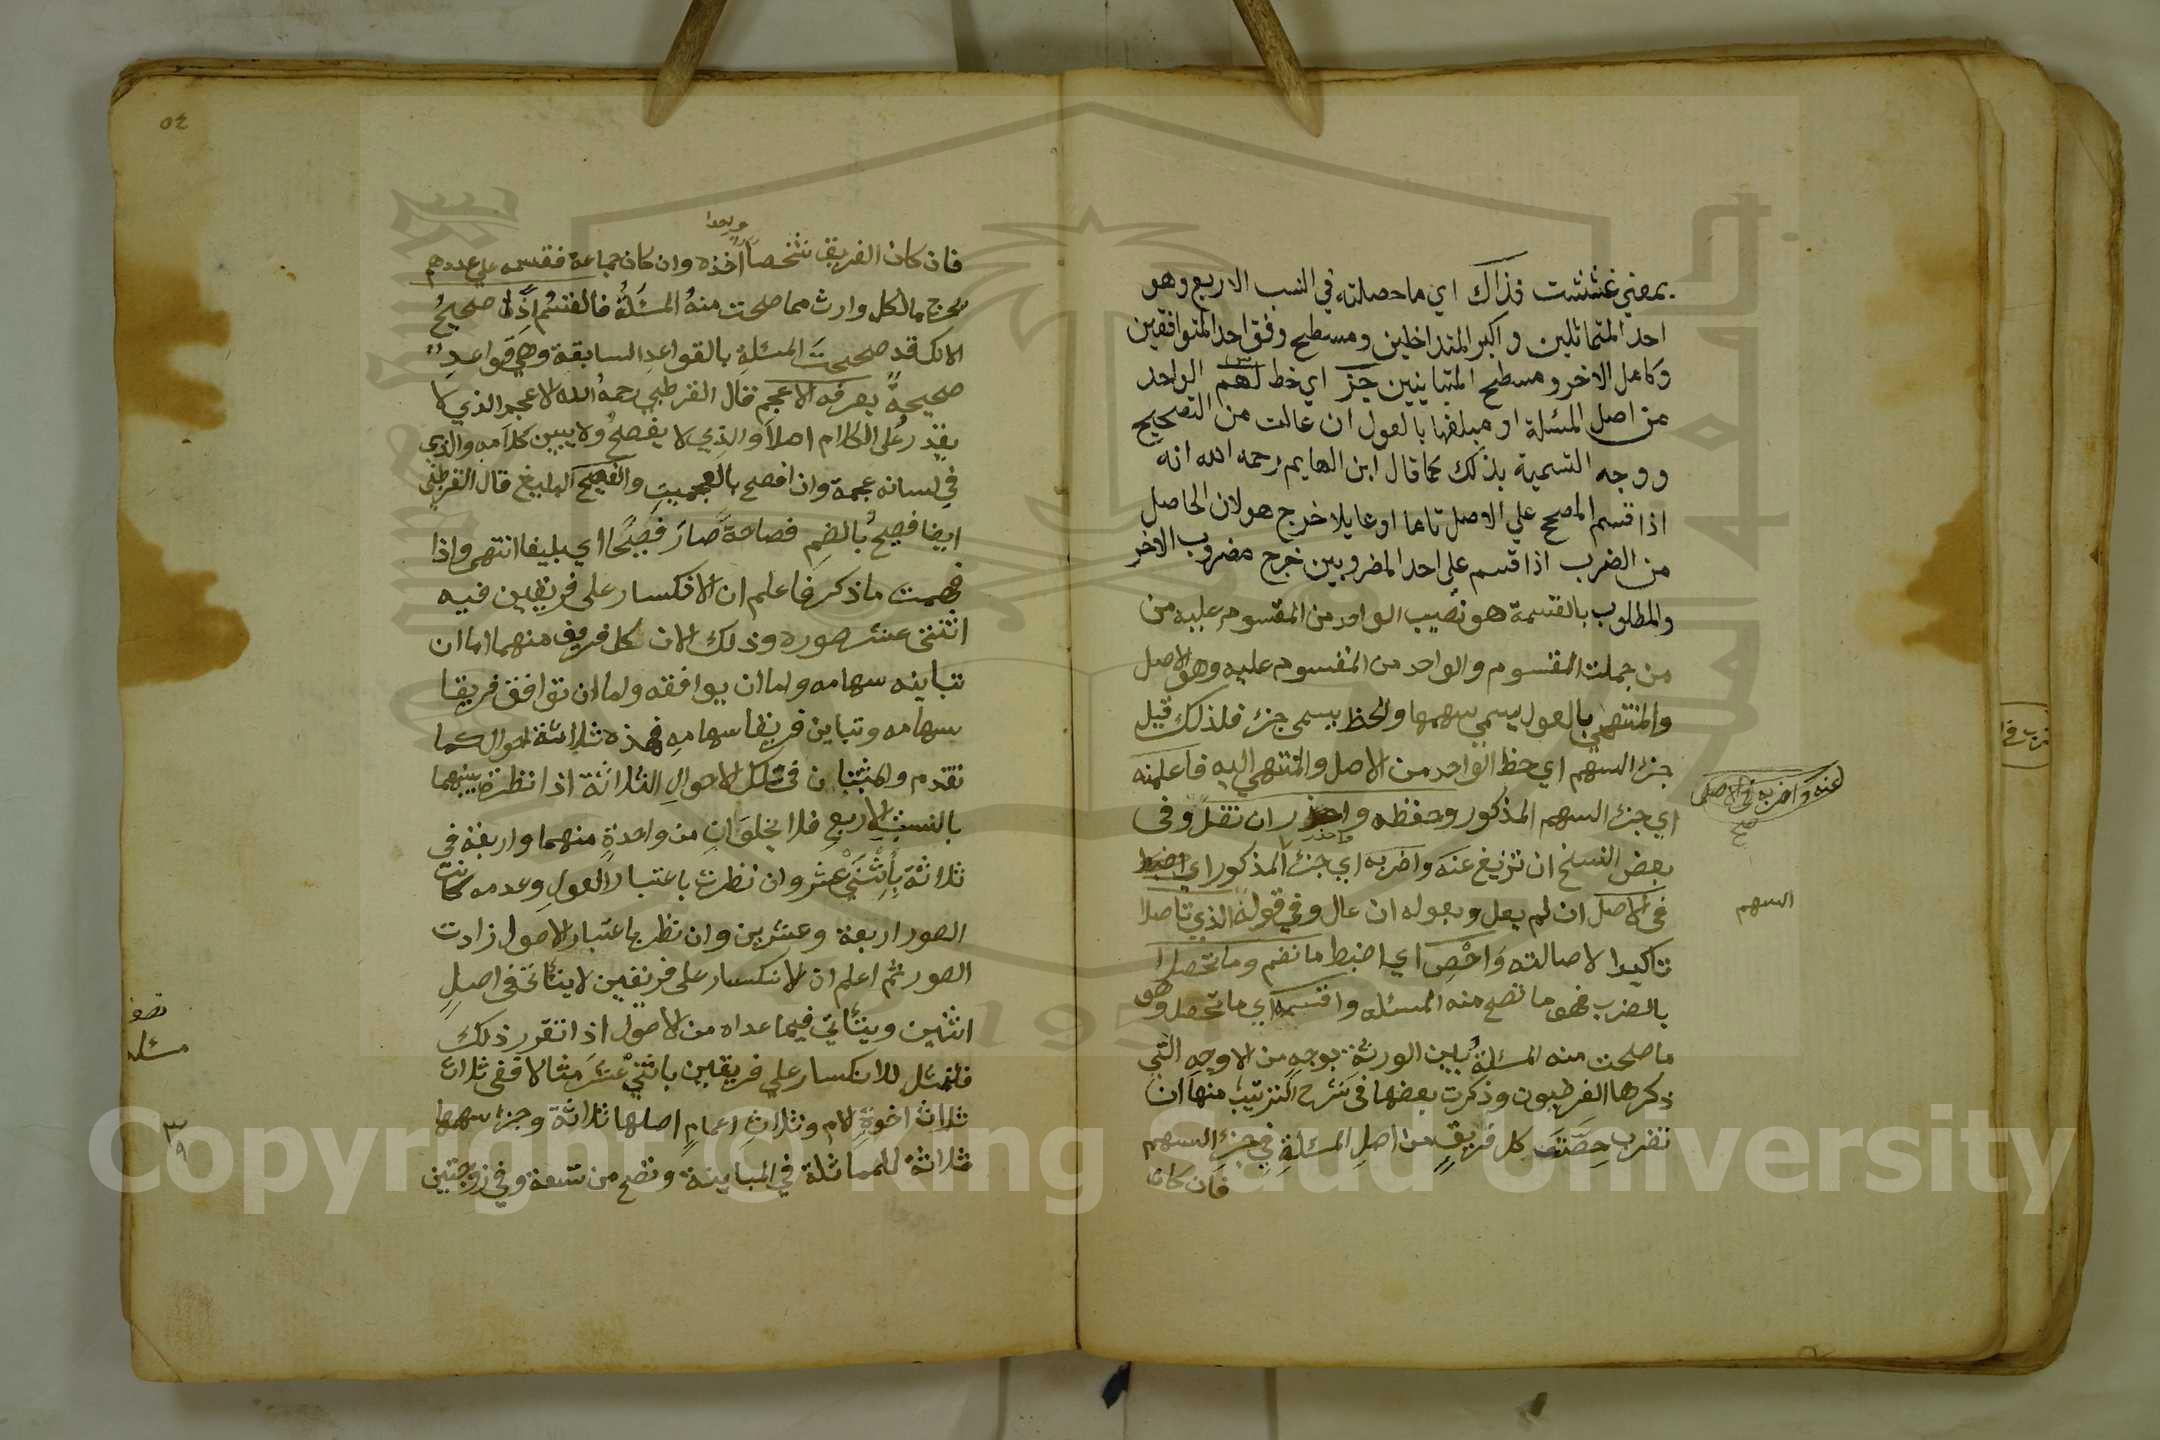 بمعني غششت فذاك اي ما حصلته في النسب الاربع وهو
احد المتماثلين واكبر المتداخلين ومسطح وفق احد المتوافقين
وكامل الاخر ومسطح المتباينين جزء اي خط لهم الواحد
من اصل المسئلة او مبلغها بالعول ان عالت من التصحيح
ووجه التسمية بذلك كما قال ابن الهايم رحمه الله انه
اذا قسم المصحح علي الاصل تاما او عايلا خرج هو لان الحاصل
من الضرب اذا قسم علي احد المضروبين خرج مضروب الاخر
والمطلوب بالقسمة هو نصيب الواحد من المقسوم عليه من
من جملت المقسوم والواحد من المقسوم عليه وهو الاصل
والمنتهي بالعول يسمي سهمها والحظ يسمي جزء فلذلك قيل
جزء السهم اي حظ الواحد من الاصل والمنتهي اليه فاعلمنه
اي جزء السهم المذكور وحفظه واحذر ان تضل وفي
بعض النسخ ان تزيغ عنه واضربه اي جزء المذكور اي
في الاصل ان لم يعل وبعوله ان عال وفي قوله الذي تاصلا
تاكيدا لاصالته واحص اي اضبط ما نضم وما تحصلا
بالضرب فهو ما تصح منه المسئله واقسمه اي ما تحصل وهو
ما صلحت منه المسئلة بين الورثة بوجه من الاوجه التي
ذكرها الفرضيون وذكرت بعضها في شرح الترتيب منها ان
تضرب حصت كل فريق من اصل المسئلة في جزء السهم
فان كان
عنه واضربه في الاصل
صح
السهم
٥٤
ويعدا
فان كان الفريق شخصا اخذه وان كان جماعة فقسمه علي عددهم
يخرج ما لكل وارث مما صلحت منه المسئلة فالقسم اذا صحيح
لانك قد صححت المسئلة بالقواعد السابقة وهي قواعد
صحيحة يعرفه الاعجم قال القرطبي رحمه الله الاعجم الذي لا
يقدر علي الكلام اصلا والذي لا يفصح ولا يبين كلامه والذي
في لسانه عجمة وان افصح بالعجمية والفصيح البليغ قال القرطبي
ايضا فصيح بالضم فصاحة صار فصيحا اي بليغا انتهى واذا
فهمت ما ذكر فاعلم ان الانكسار علي فريقين فيه
اثنتي عشر صوره وذلك لان كل فريق منهما اما ان
تباينه سهامه واما ان يوافقه واما ان توافق فريقا
سهامه وتباين فريقا سهامه فهذه ثلاثة احوال كما
تقدم والمثبتان في تلك الاحوال الثلاثة اذا نظرت بينهما
بالنسب الاربع فلا يخلوان من واحدة منهما واربعة في
ثلاثة باثني عشر وان نظرت باعتبار العول وعدمه كانت
الصور اربعة وعشرين وان نظر باعتبار الاصول زادت
الصور ثم اعلم ان الانكسار علي فريقين لا يتأتى في اصل
اثنين ويتأتي فيما عداه من الاصول اذا تقرر ذلك
فلنمثل للانكسار علي فريقين باثني عشر مثالا ففي ثلاث
ثلاث اخوة لام وثلاث اعمام اصلها ثلاثة وجزء سهمها
ثلاثة للمماثلة في المباينة وتصح من تسعة وفي زوجتين
مسئلة
٣
٩
Copyright © King Saud University